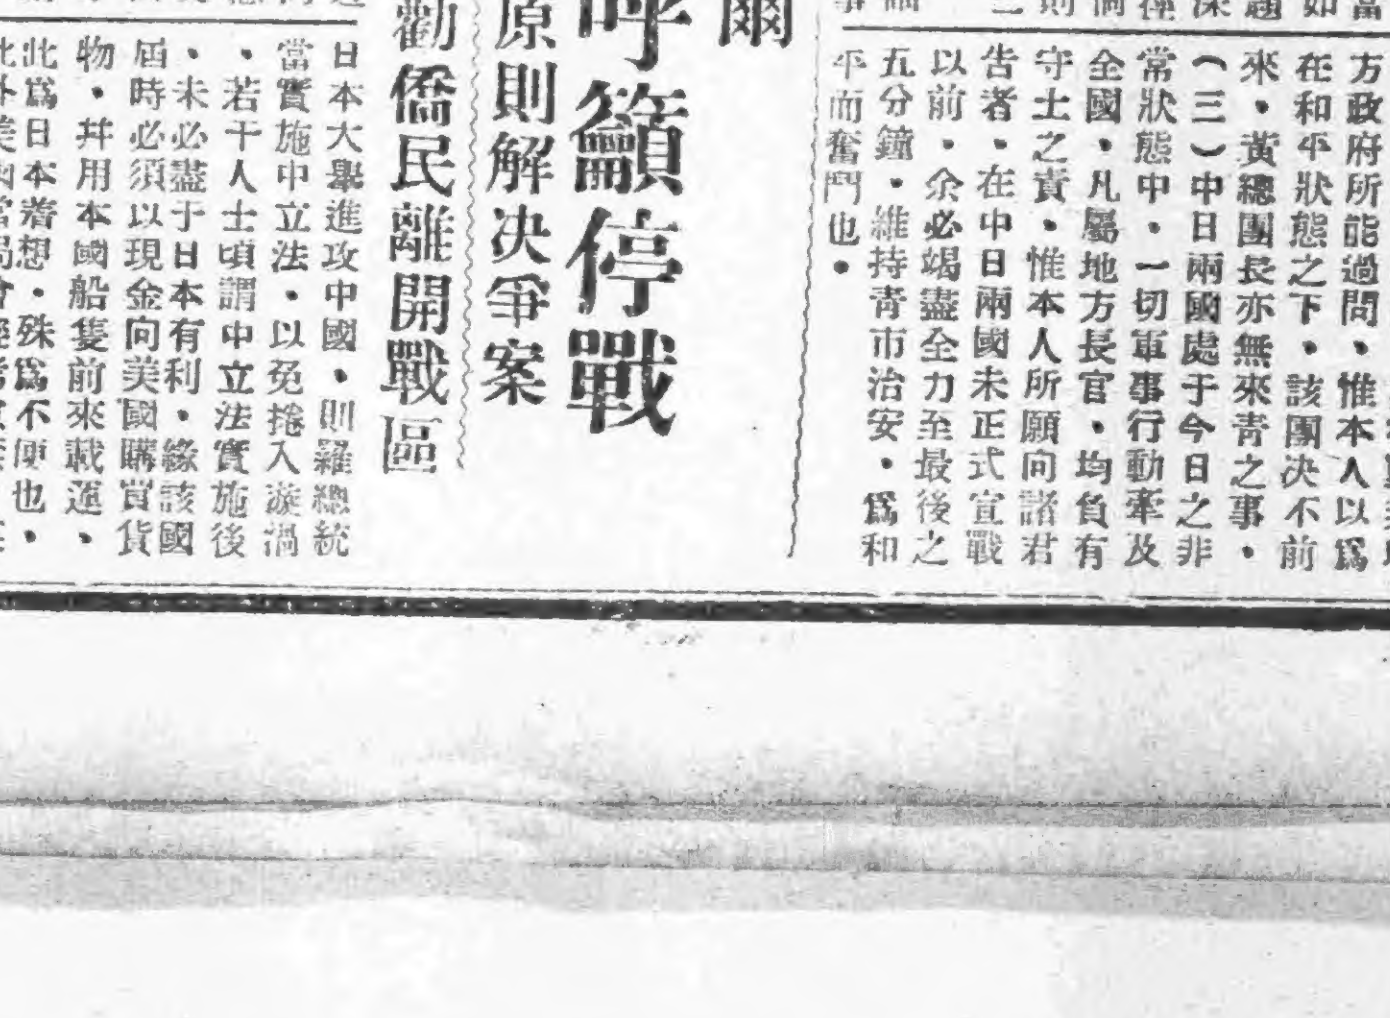 方政府所能過問、惟本人以爲
在和平狀態之下、該團决不前
來、黃總團長亦無來青之事、
（三）中日兩國處于今日之非
常狀態中、一切軍事行動牽及
全國、凡屬地方長官、均負有
守土之責、惟本人所願向諸君
告者、在中日兩國未正式宣戰
以前、余必竭盡全力至最後之
五分鐘、維持青市治安、爲和
平而奮鬥也、
爾
呼籲停戰
原則解决爭案
勸僑民離開戰區
日本大舉進攻中國、則羅總統
當實施中立法、以免捲入漩渦
、若干人士頃謂中立法實施後
、未必盡于日本有利、緣該國
屆時必須以現金向美國購買貨
物、幷用本國船隻前來載運、
此爲日本着想、殊爲不便也、